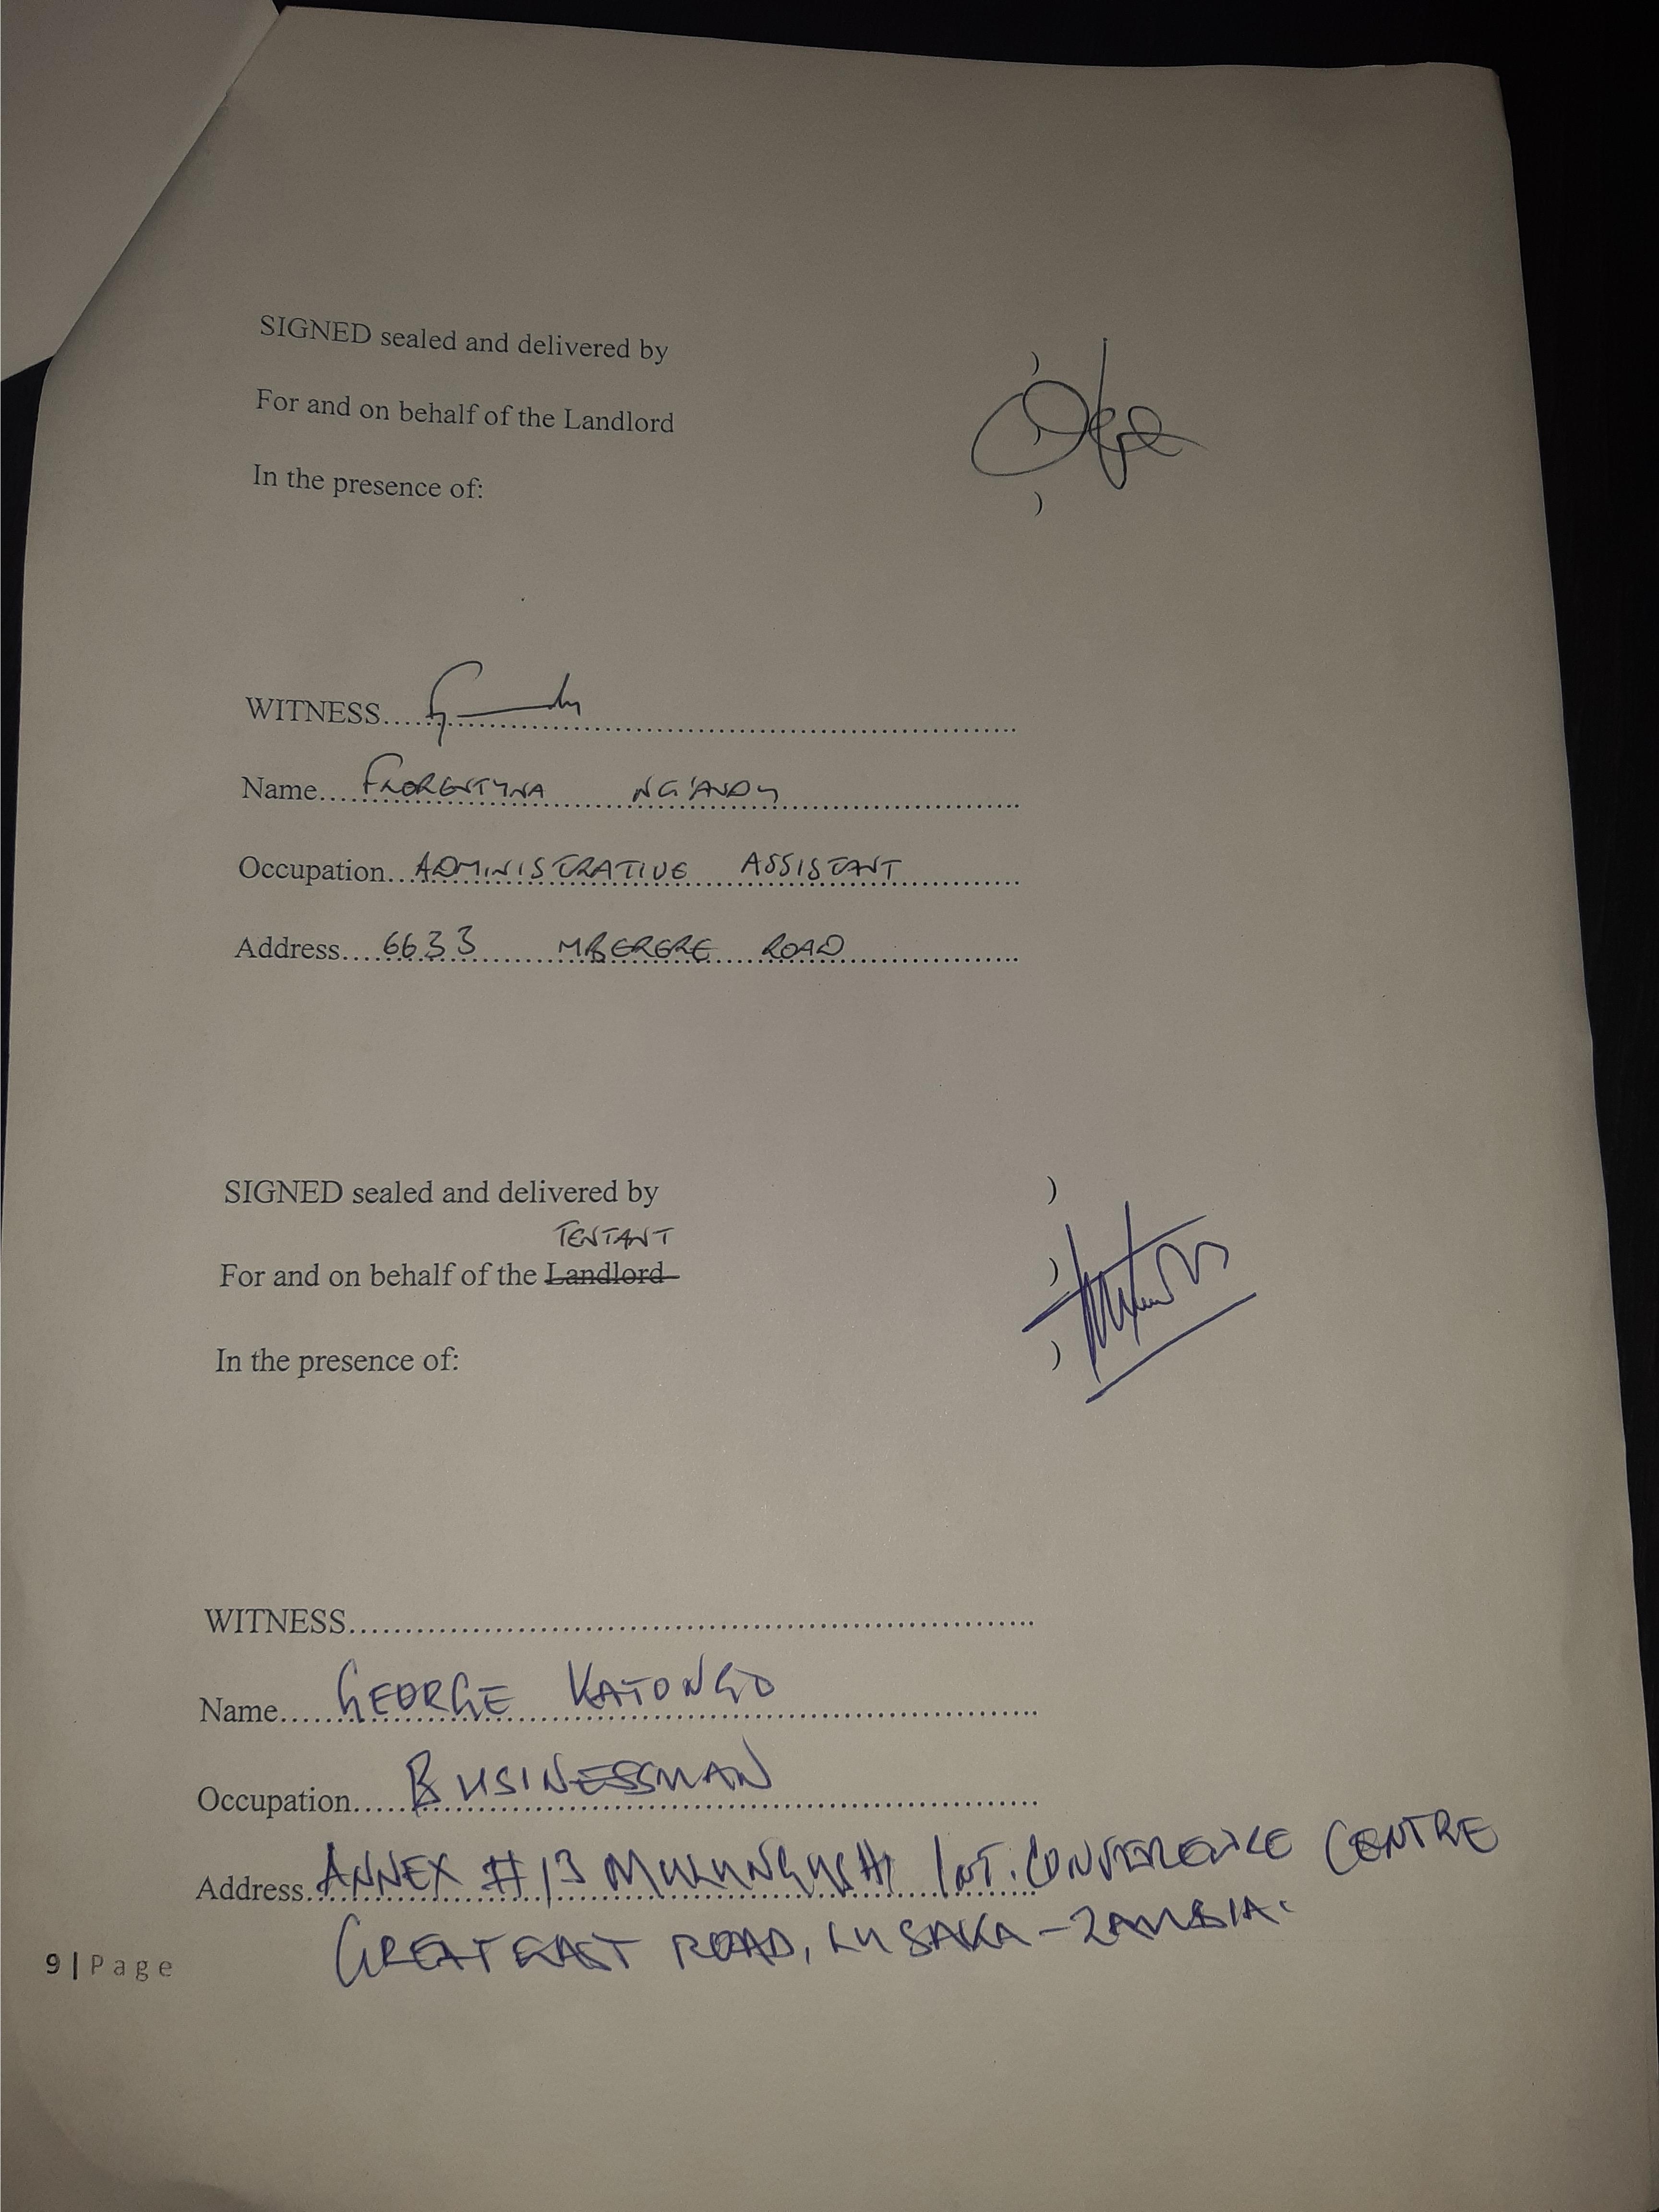 SIGNED sealed and delivered by )
For and on behalf of the Landlord )
In the presence of: )
WITNESS..............................
Name.... FLORENTYNA NG'ANDU
Occupation... ADMINISTRATIVE ASSISTANT
Address.... 6633 MBERERE ROAD
SIGNED sealed and delivered by )
TENTANT
For and on behalf of the Landlord )
In the presence of: )
WITNESS..............................
Name..... GEORGE KATONGO
Occupation..... BUSINESSMAN
Address. ANNEX #13 MULUNGUSHI INT. CONFERENCE CENTRE
GREAT EAST ROAD, LUSAKA - ZAMBIA.
9 | Page